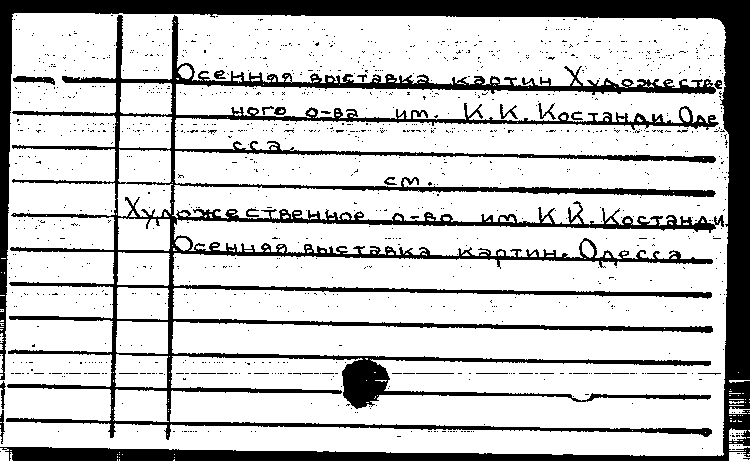 Осенняя выставка картин Художестве
ного о-ва им. К.К. Костанди. Оде
сса.
см.
Художественное о-во им. К.К. Костанди
Осенняя выставка картин. Одесса.